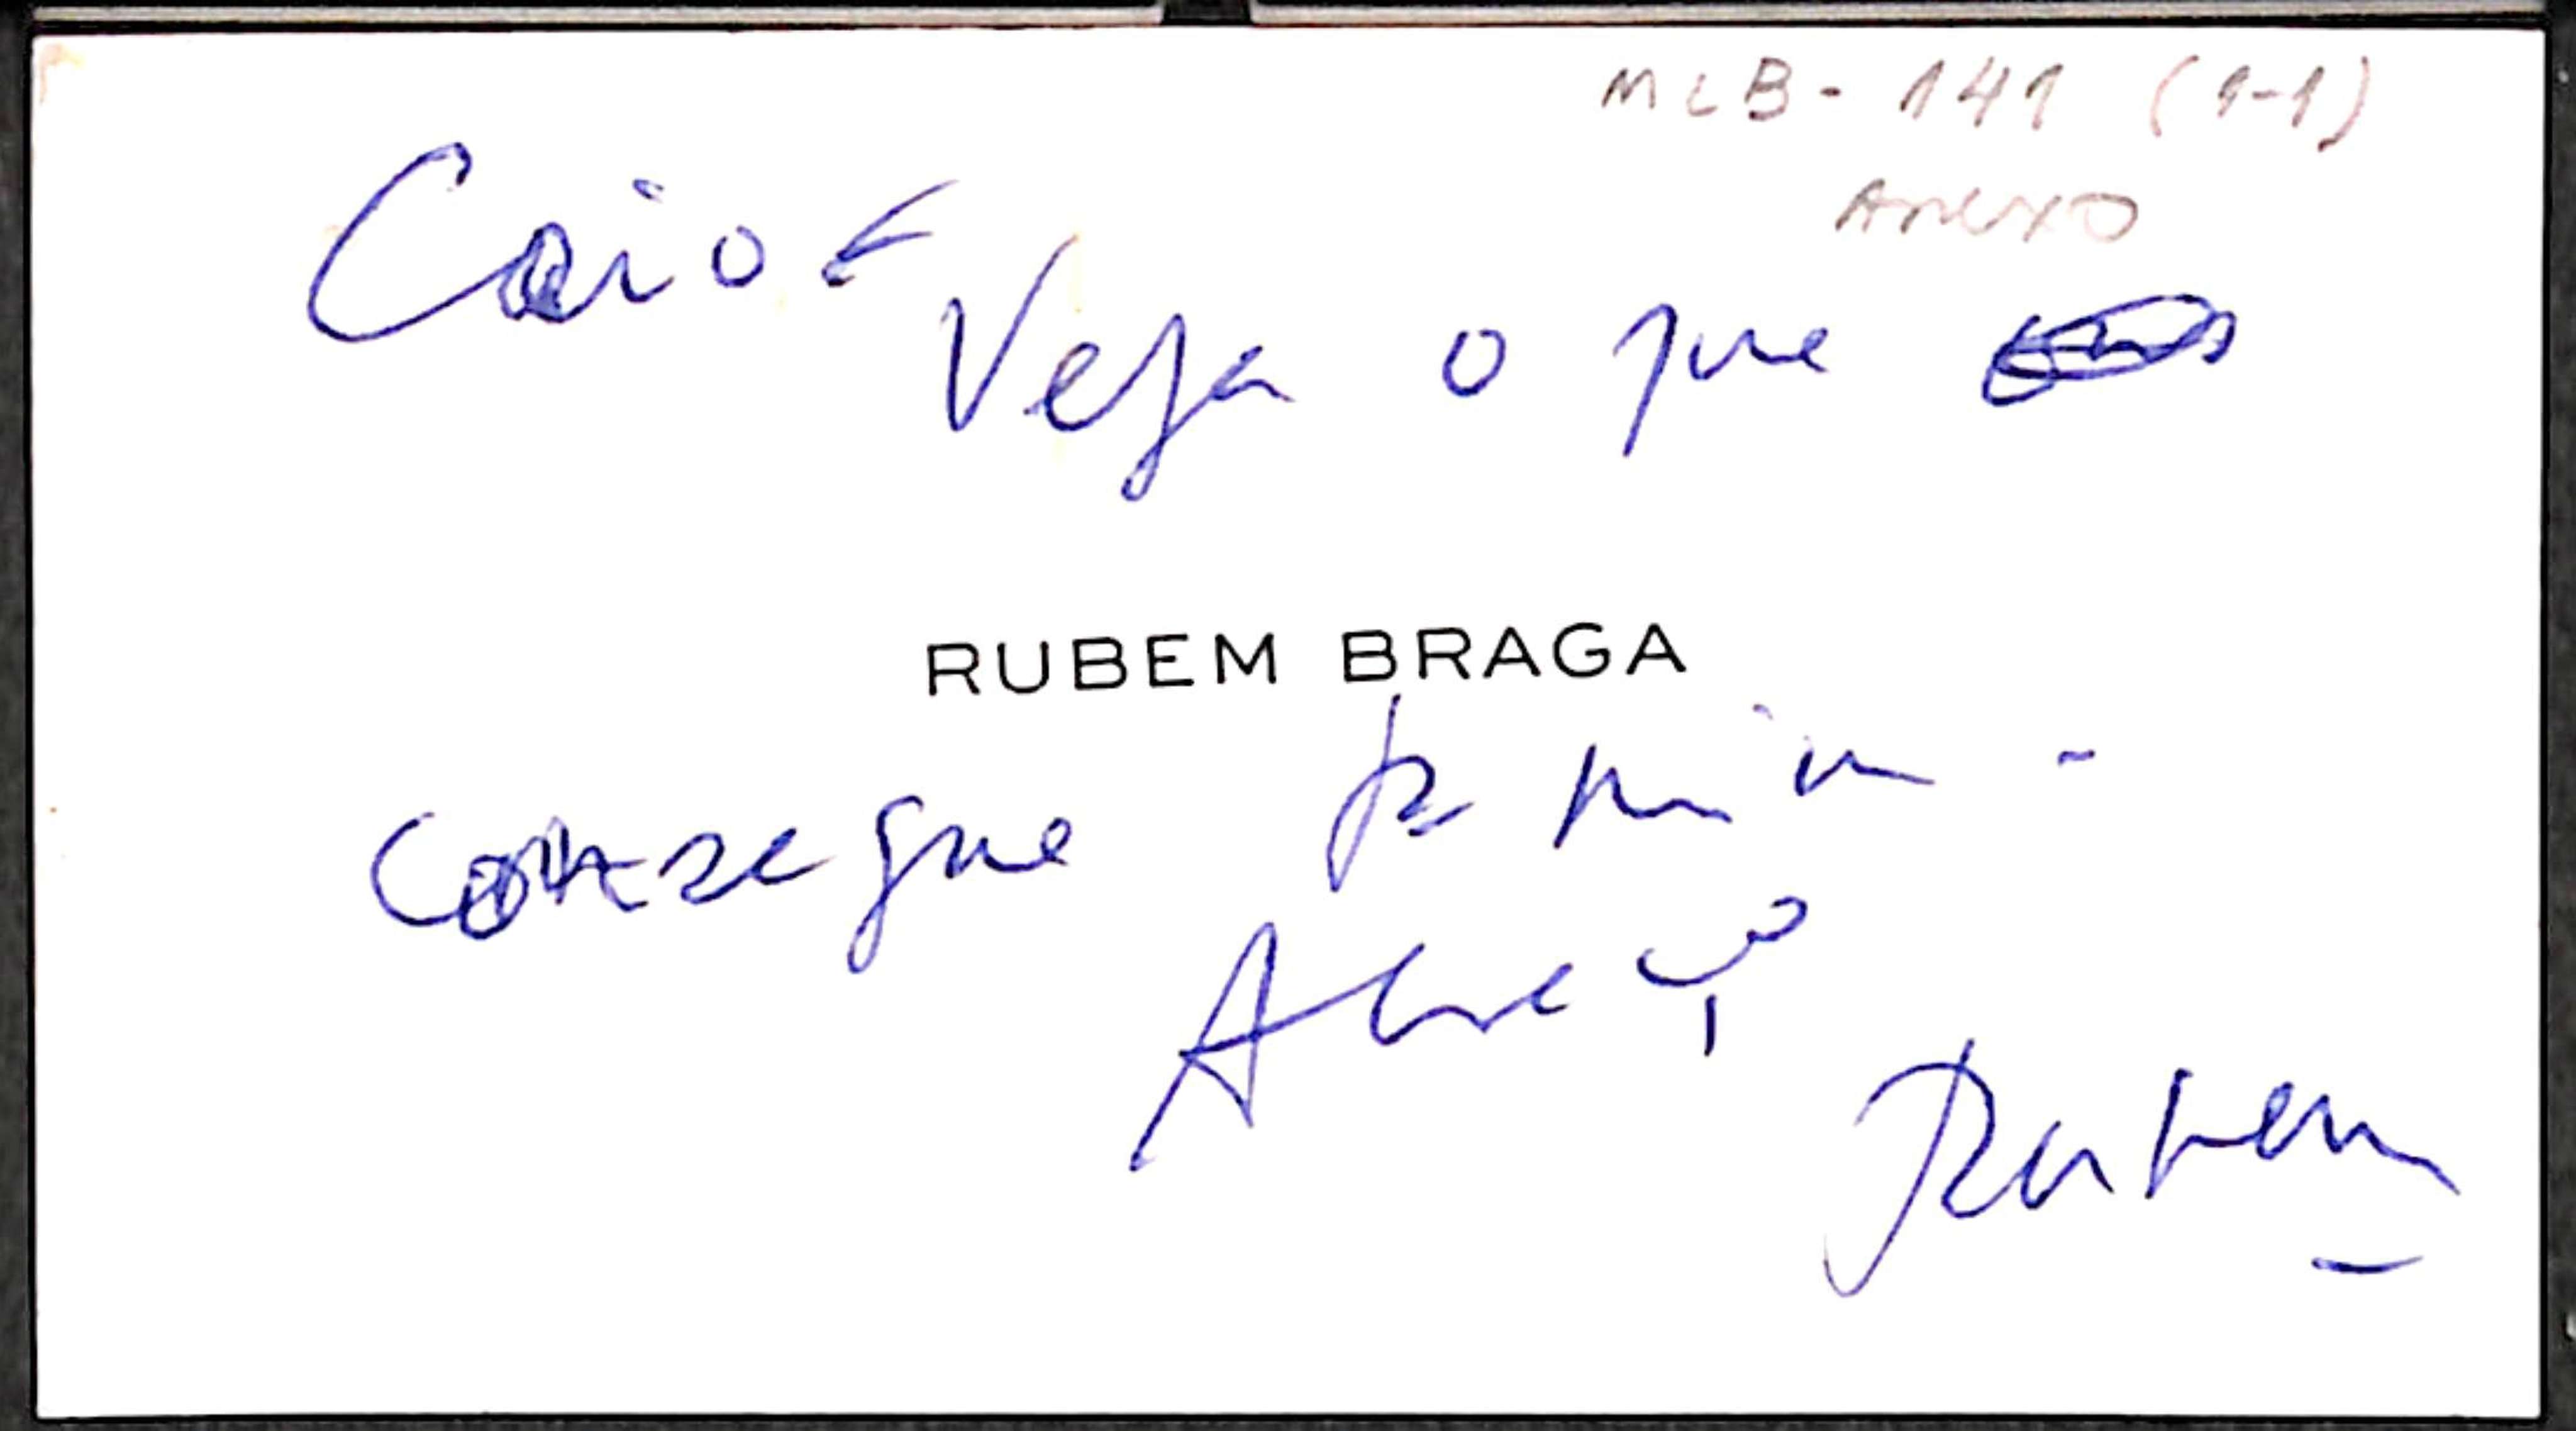 MLB - 141 (1-1)
Anexo
Caio -
Veja o que
RUBEM BRAGA
consegue p mim -
Abraço
Rubem